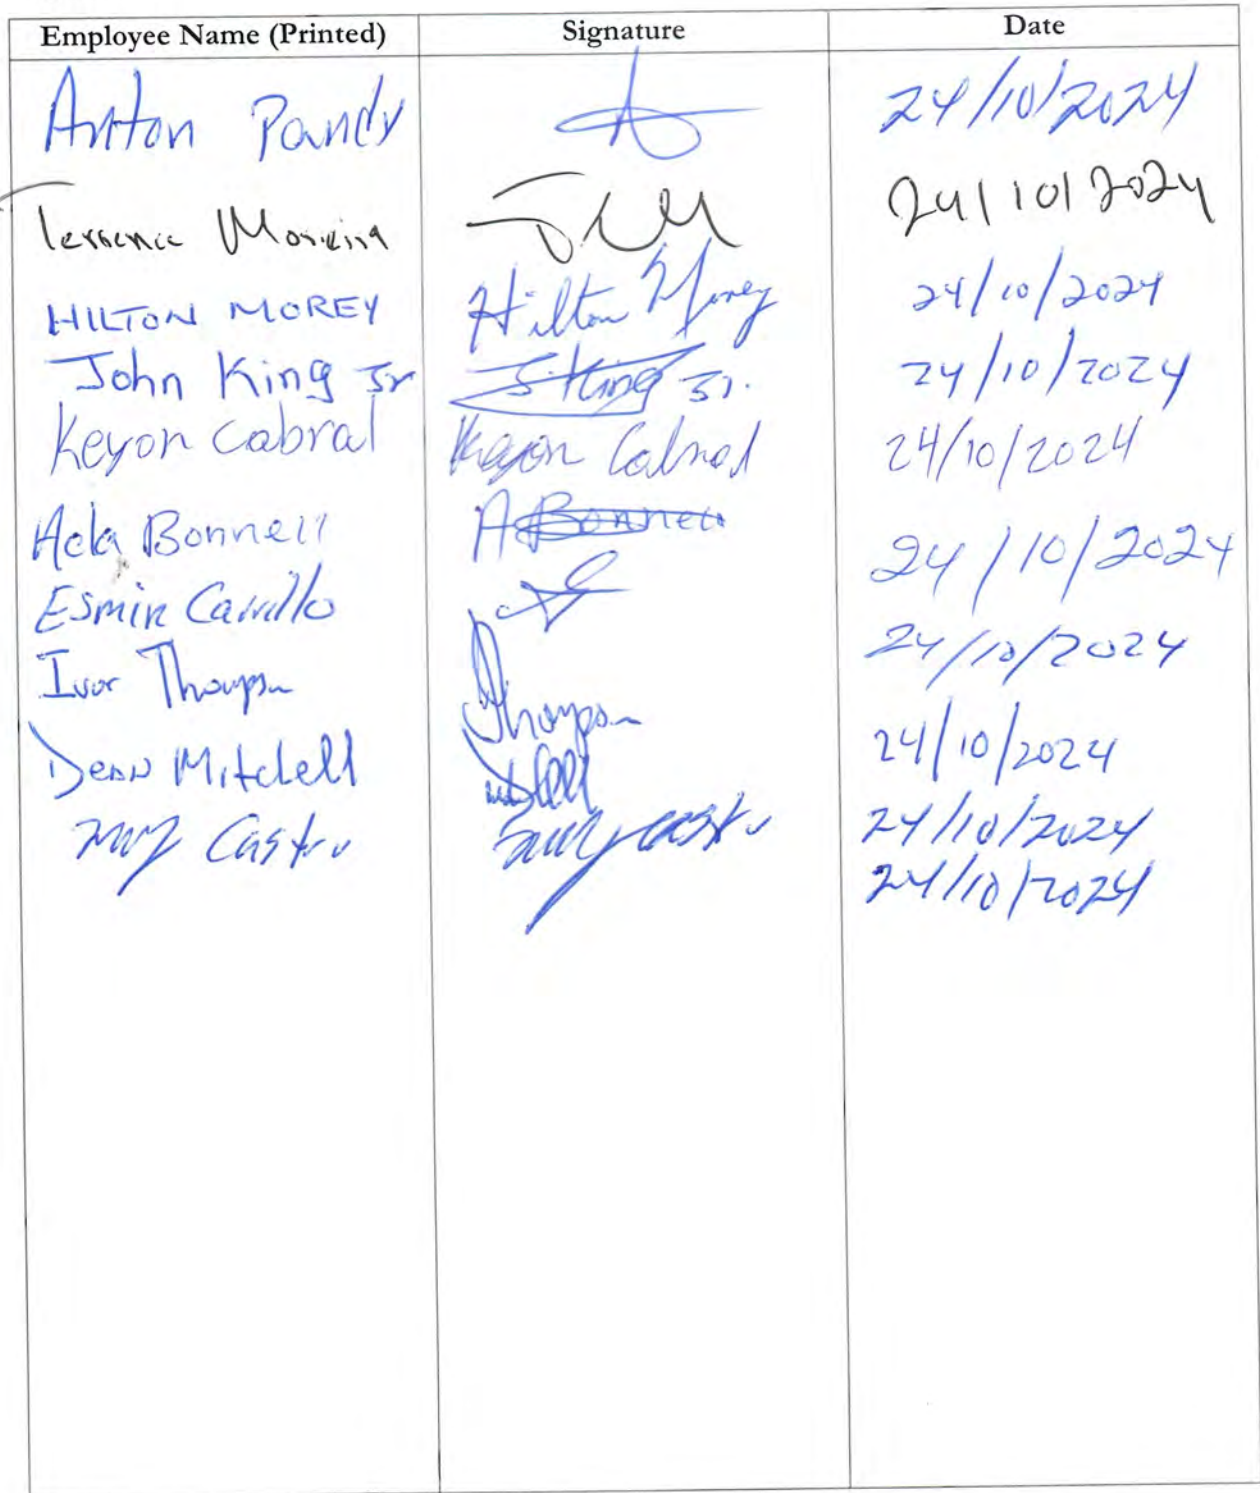 Employee Name (Printed) Signature Date
Anton Pandy 24/10/2024
Terrence Moreira 24/10/2024
HILTON MOREY Hilton Morey 24/10/2024
John King Jr J. King Jr. 24/10/2024
Keyon Cabral Keyon Cabral 24/10/2024
Acla Bonnell A Bonnell 24/10/2024
Esmin Carrillo
Ivor Thompson Thompson 24/10/2024
Dean Mitchell 24/10/2024
Castro Castro 24/10/2024
24/10/2024